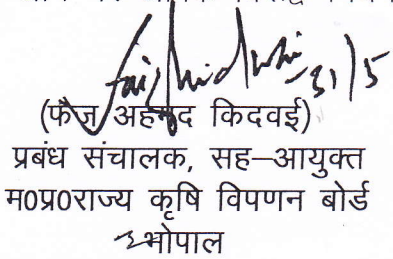 31/5
(फैज़ अहमद किदवई)
प्रबंध संचालक, सह–आयुक्त
म0प्र0राज्य कृषि विपणन बोर्ड
भोपाल